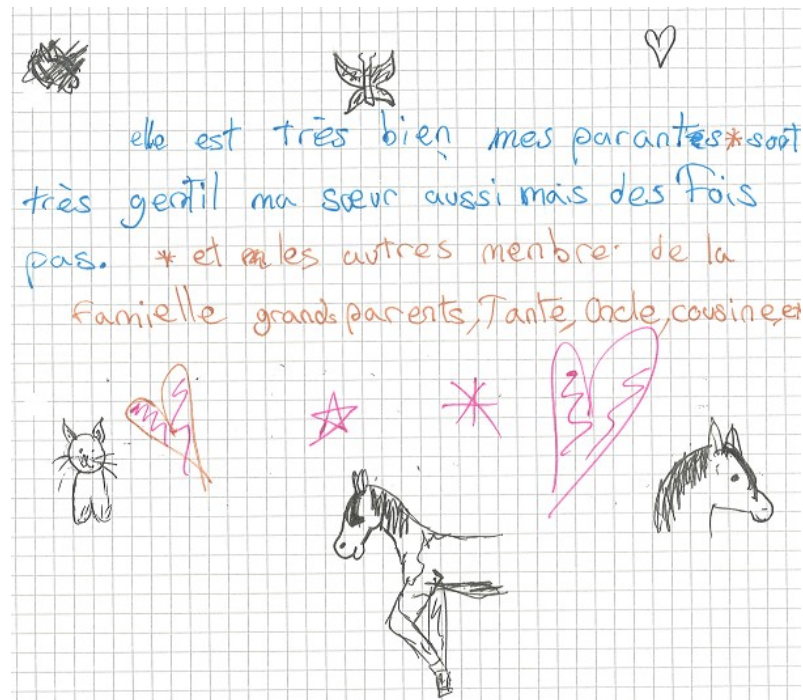 elle est très bien mes parants*sont
très gentil ma sœur aussi mais des fois
pas. * et les autres menbre de la
famielle grands parents, Tante, Oncle, cousine, et